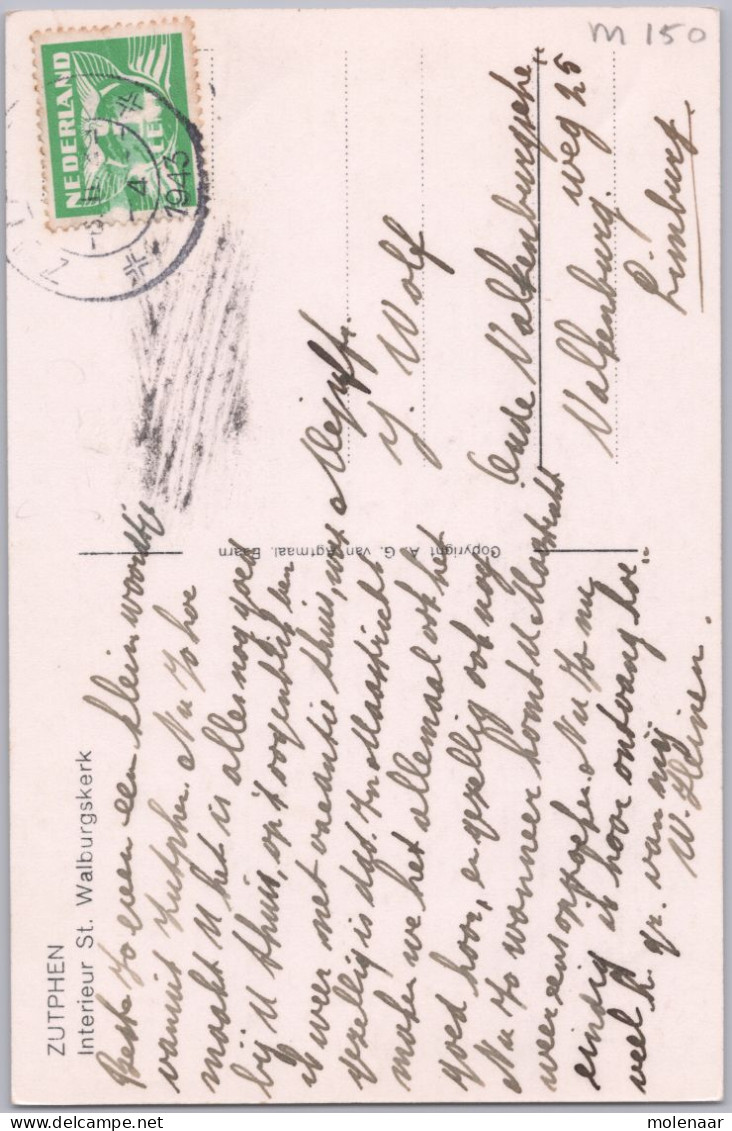 m 150
NEDERLAND
CENT
1943
ZUTPHEN
Interieur St. Walburgskerk
Copyright A. G. van Agtmaal, Baarn
Beste Jo even een klein woordtje
vanuit Zutphen. Nu Jo hoe
maakt u het is alles nog goed
bij u thuis, op 't oogenblik ben
ik weer met vacantie thuis, wat
gezellig is dgd. In Maastricht
maken we het allemaal ook het
goed hoor, en gezellig ook nog
Nu Jo wanneer komt u Maastricht
weer eens opzoeken. Nu Jo nu
eindig ik hoor ontvang hoe..
veel h. gr. van mij
W. Heinen.
Mejuffr.
J. Wolf
Oude Valkenburgsche
weg 25
Valkenburg.
Limburg.
molenaar